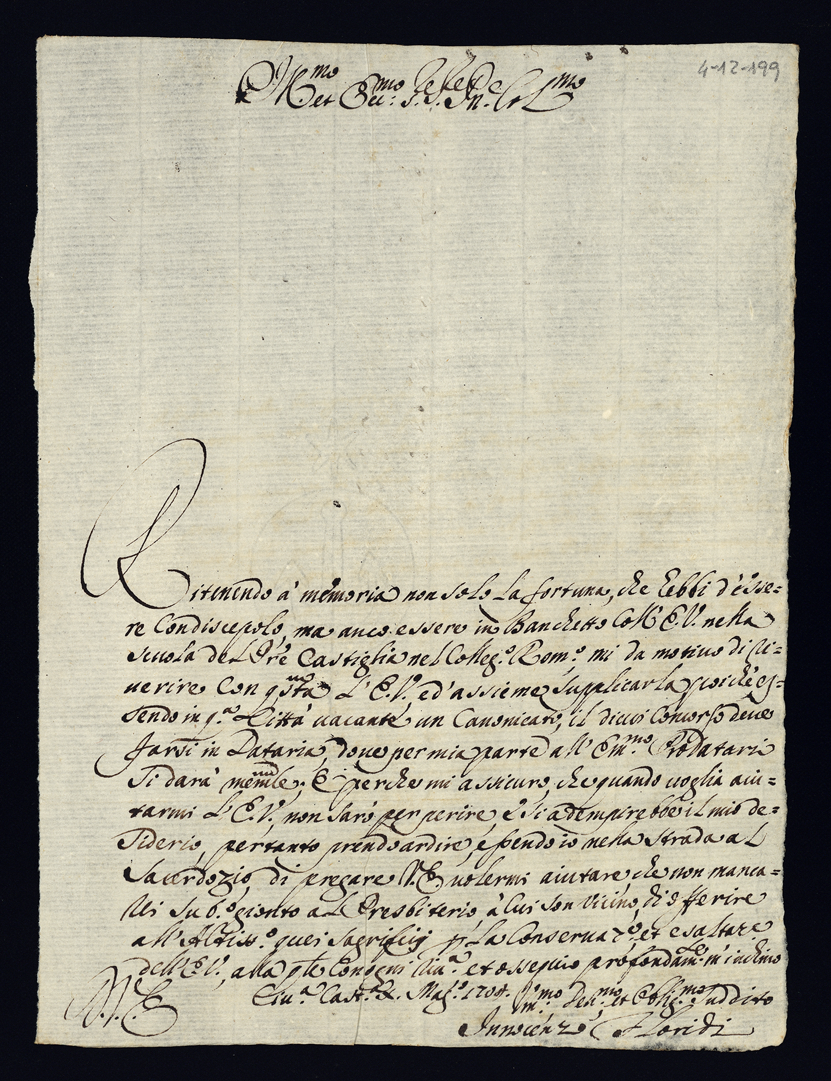 4-12-199
Ill.mo et Ecc.mo
Ritenendo à memoria non solo la fortuna, che hebbi d'esse=
re Condiscepolo, ma anco essere in Banchetto Coll'E.V. nella
scuola del P̃re Castiglia nel Colleg.o Rom.o mi da motivo di ri=
uerire con q̃sta L'E.V., ed'assieme supplicarla poiche es=
sendo in q.ta Città uacante un Canonicato, il di cui Concorso deue
farsi in Dataria, doue per mia parte all'Em.mo Prodatario
si darà mem.le; E perche mi assicuro, che quando uoglia aiu=
tarmi L'E.V. non sarò per perire, e si adempirebbe il mio de=
siderio, pertanto prendo ardire, essendo io nella strada al
Sacerdozio, di pregare V.E. uolermi aiutare che non manca=
rli subo gionto al Presbiterio, à cui son Vicino, di offerire
all'Altiss.o quei Sagrificij p̱ la Conseruaz.e, et esaltaz.e
dell'E.V., alla q̃le Con ogni et ossequio profondam.te m'inchino
Ciu.a Cast.a Mag.o 1708.
V.E. Dev.mo et Oblig.mo Suddito
Innocenzo Floridi